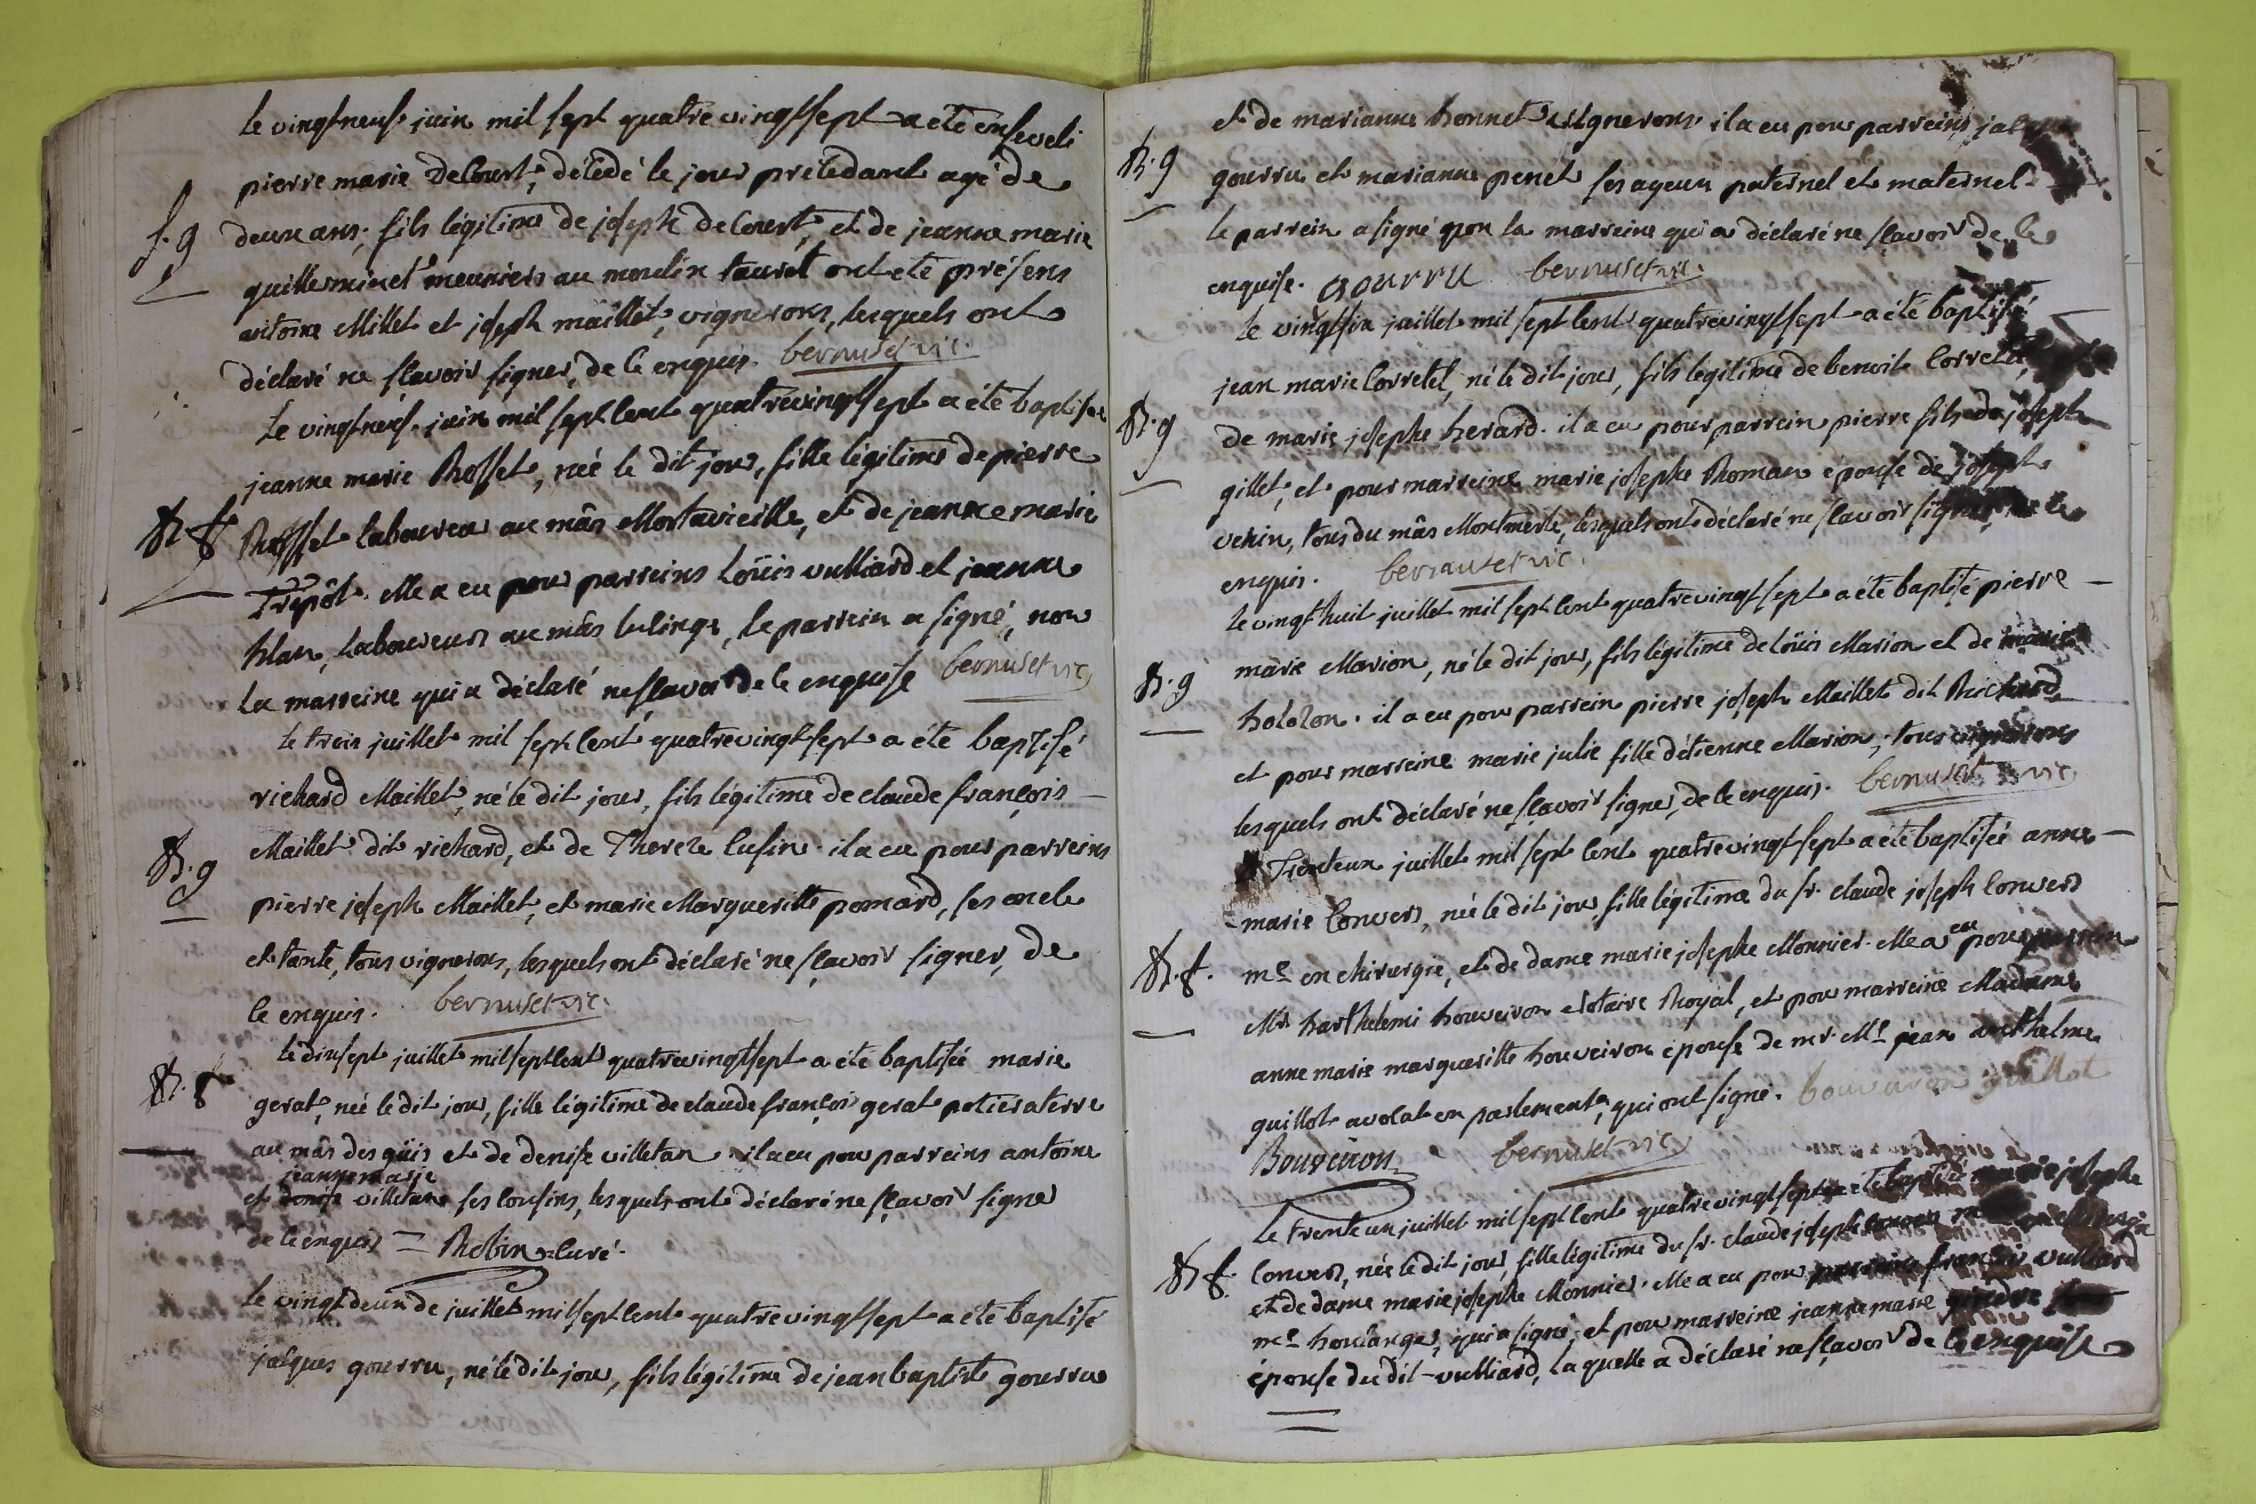 le vingt neuf juin mil sept quatre vingt sept a été enseveli
pierre marie decourt, décédé le jour précédant agé de
S. g deux ans, fils légitime de joseph decourt, et de jeanne marie
quilleminet meuniers au moulin tauret ont été présens
antoine Millet et joseph maillet, vignerons, lesquels ont
déclaré ne sçavoir signer, de ce enquis. bernuset vic.
Le vingt neuf juin mil sept cent quatre vingt sept a été baptisée
jeanne marie Rosset, née le dit jour, fille légitime de pierre
B f Rosset laboureur au mâs Mortavieille, et de jeanne marie
Trepôt. elle a eu pour parreins Loüis vulliard et jeanne
blan, laboureurs au mâs lulinge, le parrein a signé, non
la marreine qui a déclaré ne sçavoir de ce enquise bernuset vic.
le trois juillet mil sept cent quatre vingt sept a été baptisé
richard Maillet, né le dit jour, fils légitime de claude françois
B. g Maillet dit richard, et de Thereze cusin. il a eu pour parreins
pierre joseph Maillet, et marie Margueritte pomard, ses oncle
et tante, tous vignerons, lesquels ont déclaré ne sçavoir signer, de
ce enquis. bernuset vic.
le dixsept juillet mil sept cent quatre vingt sept a été baptisée marie
B. f gerat, née le dit jour, fille légitime de claude françois gerat potier a terre
au mâs des güis et de denise villetan il a eu pour parreins antoine
jeanne marie
et denise villetan ses cousins, lesquels ont déclaré ne sçavoir signer
de ce enquis = Robin curé.
Le vingt deux de juillet mil sept cent quatre vingt sept a été baptisé
jacques gourru, né le dit jour, fils légitime de jean baptiste gourru
et de marianne bonnet vignerons. il a eu pour parreins
B. g gourru et marianne penet ses ayeux paternel et maternel.
le parrein a signé non la marreine qui a déclaré ne sçavoir de ce
enquise. gourru bernuset vic.
Le vingt six juillet mil sept cent quatre vingt sept a été baptisé
jean marie Corretel, né le dit jour, fils légitime de benoit Corretel,
B. g de marie josephe herard. il a eu pour parrein pierre fils de joseph
gillet, et pour marreine marie josephe Roman epouse de joseph
vekin, tous du mâs Montmerle, lesquels ont déclaré ne sçavoir signer, de ce
enquis. bernuset vic.
le vingt huit juillet mil sept cent quatre vingt sept a été baptisé pierre
B. g marie Marion, né le dit jour, fils légitime de loüis Marion et de marie
bolozon. il a eu pour parrein pierre joseph Maillet dit Richard,
et pour marreine marie julie fille d'etienne Marion, tous vignerons
lesquels ont déclaré ne sçavoir signer, de ce enquis. bernuset vic.
Trente un juillet mil sept cent quatre vingt sept a été baptisée anne
marie Convers, née le dit jour, fille légitime du sr. claude joseph Convers
B. f. me en chirurgie, et de dame marie josephe Monnier. elle a eu pour parrein
Mr barthelemi bouveiron Notaire Royal, et pour marreine Madame
anne marie margueritte bouveiron épouse de mr. Me jean anthelme
guillot avocat en parlement, qui ont signé. bouveiron guillot
Bouveiron bernuset vic.
Le trente un juillet mil sept cent quatre vingt sept a été baptisée marie josephe
B f. Convers, née le dit jour, fille légitime du sr. claude joseph Convers me en chirurgie
et de dame marie josephe Monnier. elle a eu pour parrein françois vulliard
me boulanger, qui a signé, et pour marreine jeanne marie
épouse du dit vulliard, la quelle a déclaré ne sçavoir de ce enquise